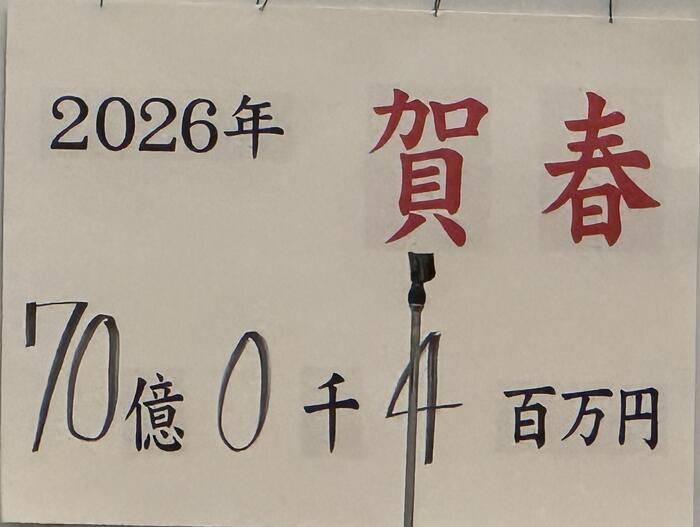 2026年 賀春
70億0千4百万円